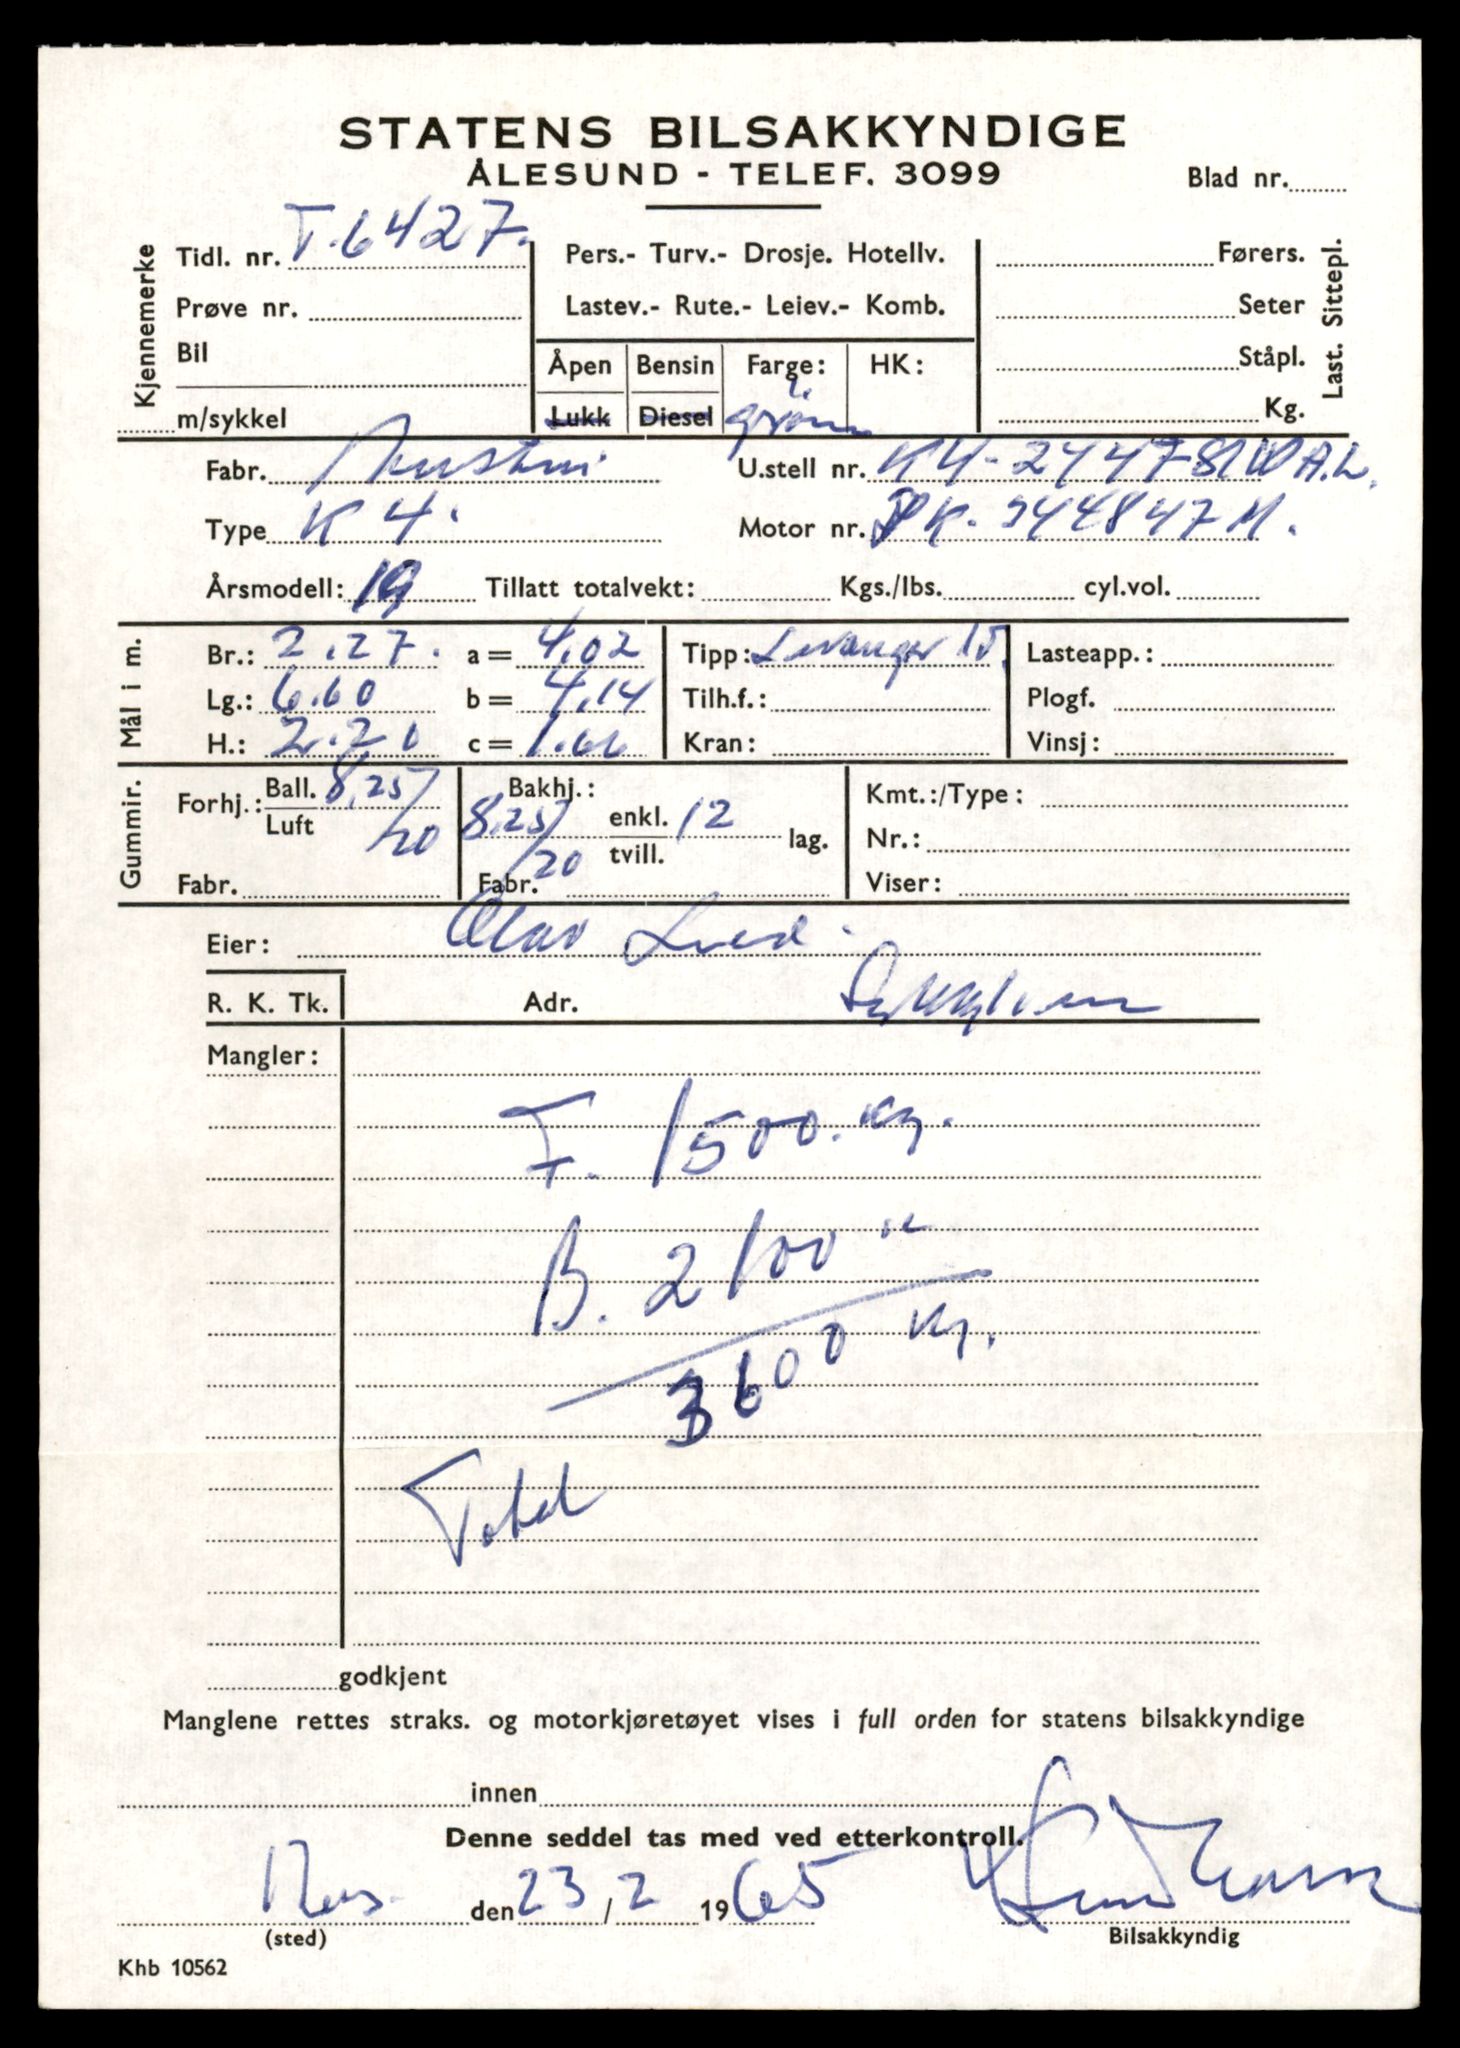 STATENS BILSAKKYNDIGE
ÅLESUND - TELEF. 3099
Blad nr.
Kjennemerke
Tidl. nr. T. 6427.
Prøve nr.
Bil
m/sykkel
Pers.- Turv.- Drosje. Hotellv.
Lastev.- Rute.- Leiev.- Komb.
Åpen Bensin Farge: HK:
Lukk Diesel grønn
Førers.
Seter
Ståpl.
Kg.
Last. Sittepl.
Fabr. Austin U.stell nr.
Type K 4. Motor nr.
Årsmodell: 19 Tillatt totalvekt: Kgs./lbs. cyl.vol.
Mål i m.
Br.: 2.27. a = 4,02 Tipp: Levanger 15. Lasteapp.:
Lg.: 6.60 b = 4,14 Tilh.f.: Plogf.
H.: 2.20 c = 1.66 Kran: Vinsj:
Gummir.
Forhj.: Ball. 8,25/20 Luft
Fabr.
Bakhj.: 8.25/20 enkl. 12 tvill. lag.
Fabr.
Kmt.:/Type:
Nr.:
Viser:
Eier: Olav
R. K. Tk. Adr.
Mangler:
F. 1500. kg.
B. 2100 "
3600 kg.
Total
godkjent
Manglene rettes straks. og motorkjøretøyet vises i full orden for statens bilsakkyndige
innen
Denne seddel tas med ved etterkontroll.
den 23/2 1965
(sted) Bilsakkyndig
Khb 10562